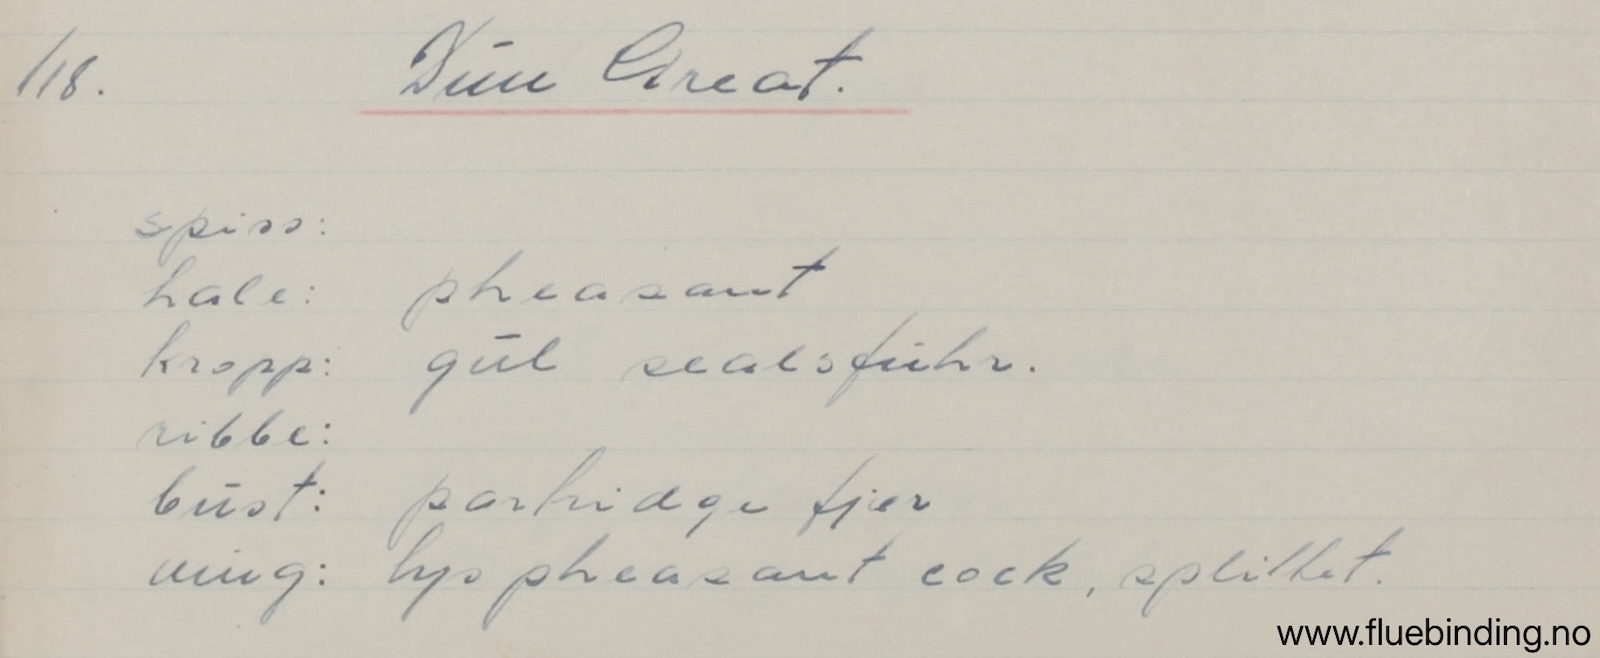 118. Dun Great.
spiss:
hale: pheasant
kropp: gul sealsfuhr.
ribbe:
bust: partridge fjær
ving: lys pheasant cock, splittet.
www.fluebinding.no